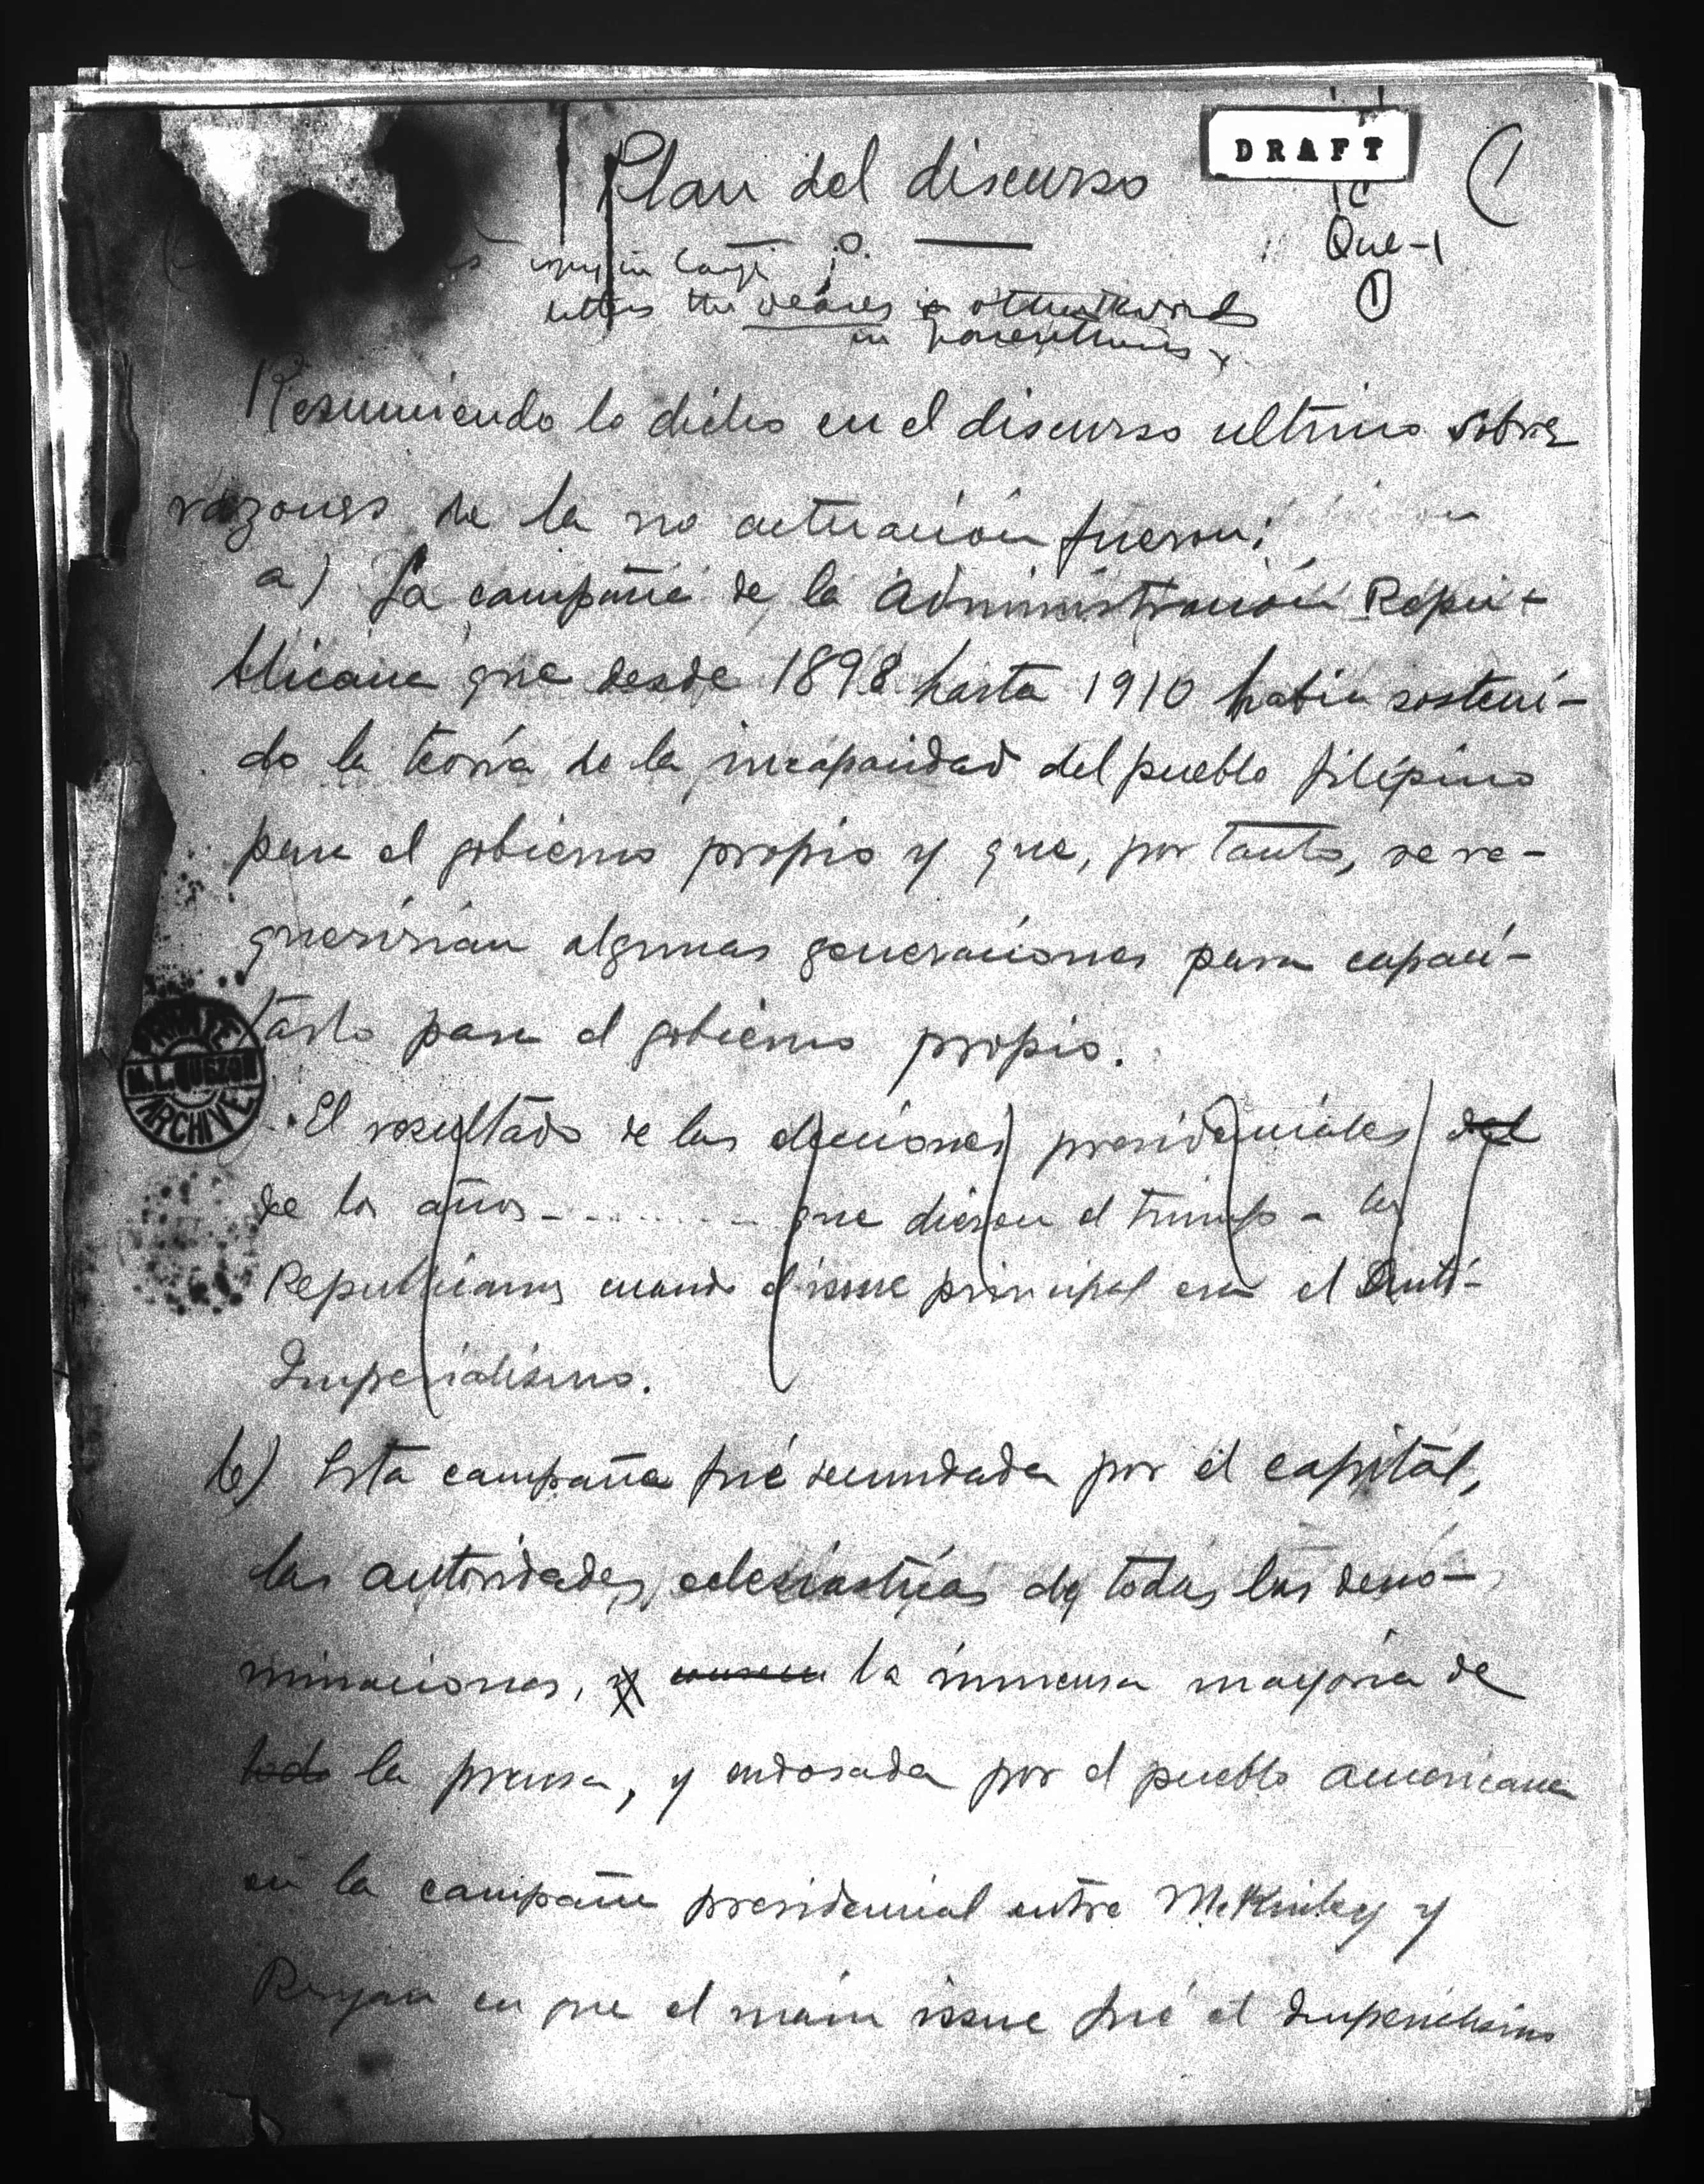 DRAFT
Plan del discurso
(1
Que-1
1
letters the in other words
in parenthesis
Resumiendo lo dicho en el discurso ultimo sobre
razones de la no actuación fueron:
a) La campaña de la Administración Repu-
blicana que desde 1898 hasta 1910 había sosteni-
do la teoría de la incapacidad del pueblo filipino
para el gobierno propio y que, por tanto, se re-
querirían algunas generaciones para capaci-
tarlo para el gobierno propio.
PRIVATE
M.L. QUEZON
ARCHIVE
El resultado de las elecciones presidenciales del
de los años - - - - - - - - que dieron el triunfo a los
Republicanos cuando el issue principal era el Anti-
Imperialismo.
b) Esta campaña fué secundada por el capital,
las autoridades eclesiásticas de todas las deno-
minaciones, y la inmensa mayoría de
toda la prensa, y endosada por el pueblo americano
en la campaña presidencial entre McKinley y
Bryan en que el main issue fué el Imperialismo